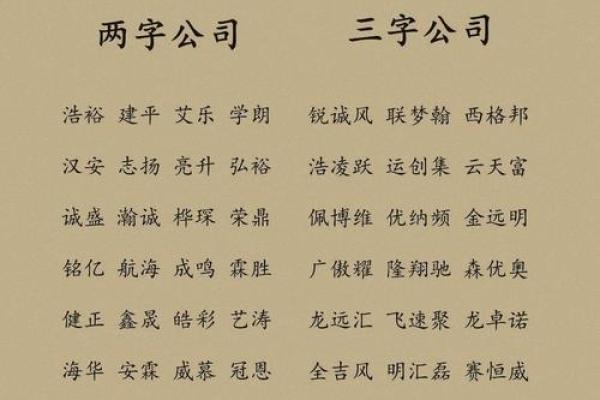 两字公司
浩裕 建平 艾乐 学朗
汉安 志扬 亮升 弘裕
诚盛 瀚诚 桦琛 荣鼎
铭亿 航海 成鸣 霖胜
健正 鑫晟 皓彩 艺涛
海华 安霖 威慕 冠恩
三字公司
锐诚风 联梦翰 西格邦
浩凌跃 运创集 云天富
佩博维 优纳频 金远明
广傲耀 隆翔驰 森优奥
龙远汇 飞速聚 龙卓诺
全吉风 明汇磊 赛恒威